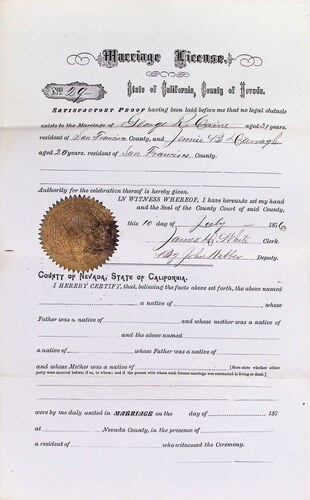 Marriage License.
No. 29
State of California, County of Nevada.
SATISFACTORY PROOF having been laid before me that no legal obstacle
exists to the Marriage of George R. Caine aged 31 years,
resident of San Francisco County, and Jennie B.
aged 20 years, resident of San Francisco County.
Authority for the celebration thereof is hereby given.
IN WITNESS WHEREOF, I have hereunto set my hand
and the Seal of the County Court of said County,
this 10 day of July 1876
James D. White Clerk.
By John Webber Deputy.
COUNTY OF NEVADA, STATE OF CALIFORNIA.
I HEREBY CERTIFY, that, believing the facts above set forth, the above named
a native of whose
Father was a native of and whose mother was a native of
and the above named
a native of whose Father was a Native of
and whose Mother was a native of [Here state whether either
party were married before; if so, to whom; and if the person with whom such former marriage was contracted is living or dead.]
were by me duly united in MARRIAGE on the day of 187
at Nevada County, in the presence of
a resident of who witnessed the Ceremony.